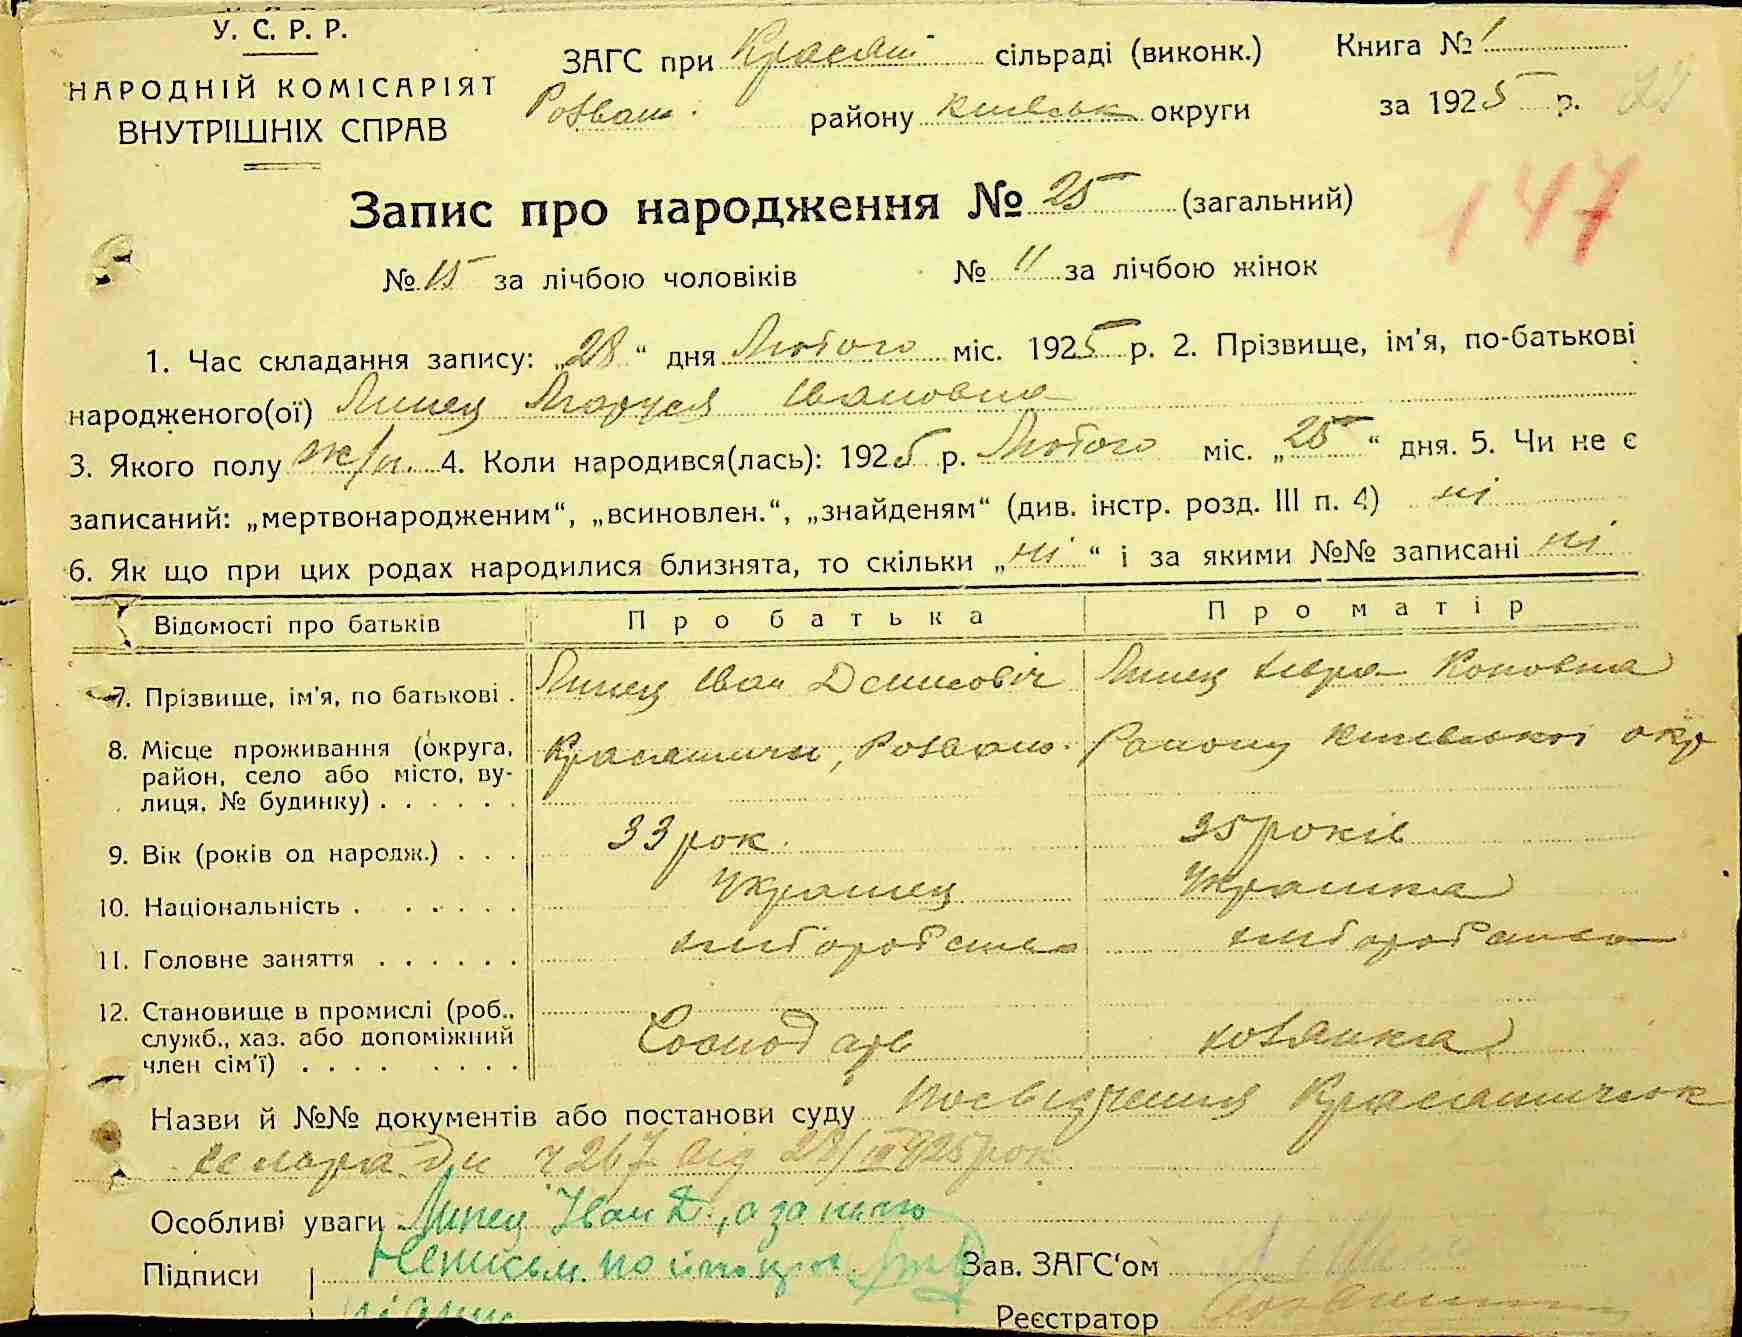 У. С. Р. Р.
НАРОДНІЙ КОМІСАРІЯТ
ВНУТРІШНІХ СПРАВ
ЗАГС при Красят сільраді (виконк.) Книга № 1
Розваж. району Київськ округи за 1925 р.
147
Запис про народження № 25 (загальний)
№ 15 за лічбою чоловіків № 11 за лічбою жінок
1. Час складання запису: „28“ дня Лютого міс. 1925 р. 2. Прізвище, ім'я, по-батькові
народженого(ої) Линец Маруся Івановна
3. Якого полу ж/п. 4. Коли народився(лась): 1925 р. Лютого міс. „25“ дня. 5. Чи не є
записаний: „мертвонародженим“, „всиновлен.“, „знайденям“ (див. інстр. розд. III п. 4) ні
6. Як що при цих родах народилися близнята, то скільки „ні“ і за якими №№ записані ні
Відомості про батьків Про батька Про матір
7. Прізвище, ім'я, по батькові . Линец Іван Денисовіч Линец Кононвна
8. Місце проживання (округа, район, село або місто, вулиця, № будинку) . . . . . . Красятичи, Розваж. Району Київської окр
9. Вік (років од народж.) . . . 33 рок. 35 років
10. Національність . . . . . . Украінец Украінка
11. Головне заняття . . . . . . хліборобство хліборобство
12. Становище в промислі (роб., служб., хаз. або допоміжний член сім'ї) . . . . . . . . Господарь хозяйка
Назви й №№ документів або постанови суду Посвідчення Красятичськ
селоради ч 267 від 28/II 1925 рок
Особливі уваги Линец Іван Д., а за нього
Підписи Неписьм. по його прос. Зав. ЗАГС'ом
Реєстратор